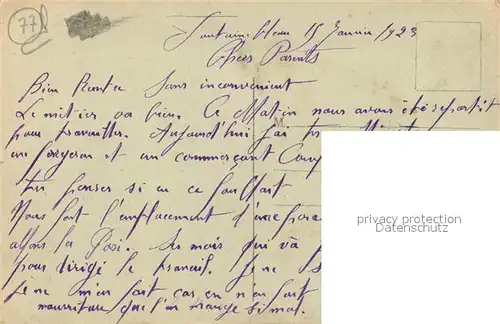 77
Fontainebleau 15 Janvier 1923
Chers Parents
Bien Rentré sans inconvenient
Le métier va bien. Ce Matin nous avons été repartit
pour travailler. Aujourd'hui j'ai
un forgeron et un commerçant
Tu penses si ça ce
Nous font l'emplacement d'une
allons la Six mois qui va
pour dirigé le travail. Je ne
Je ne m'en fait car en n'en fait
nourriture que l'on mange si mal.
privacy protection
Datenschutz